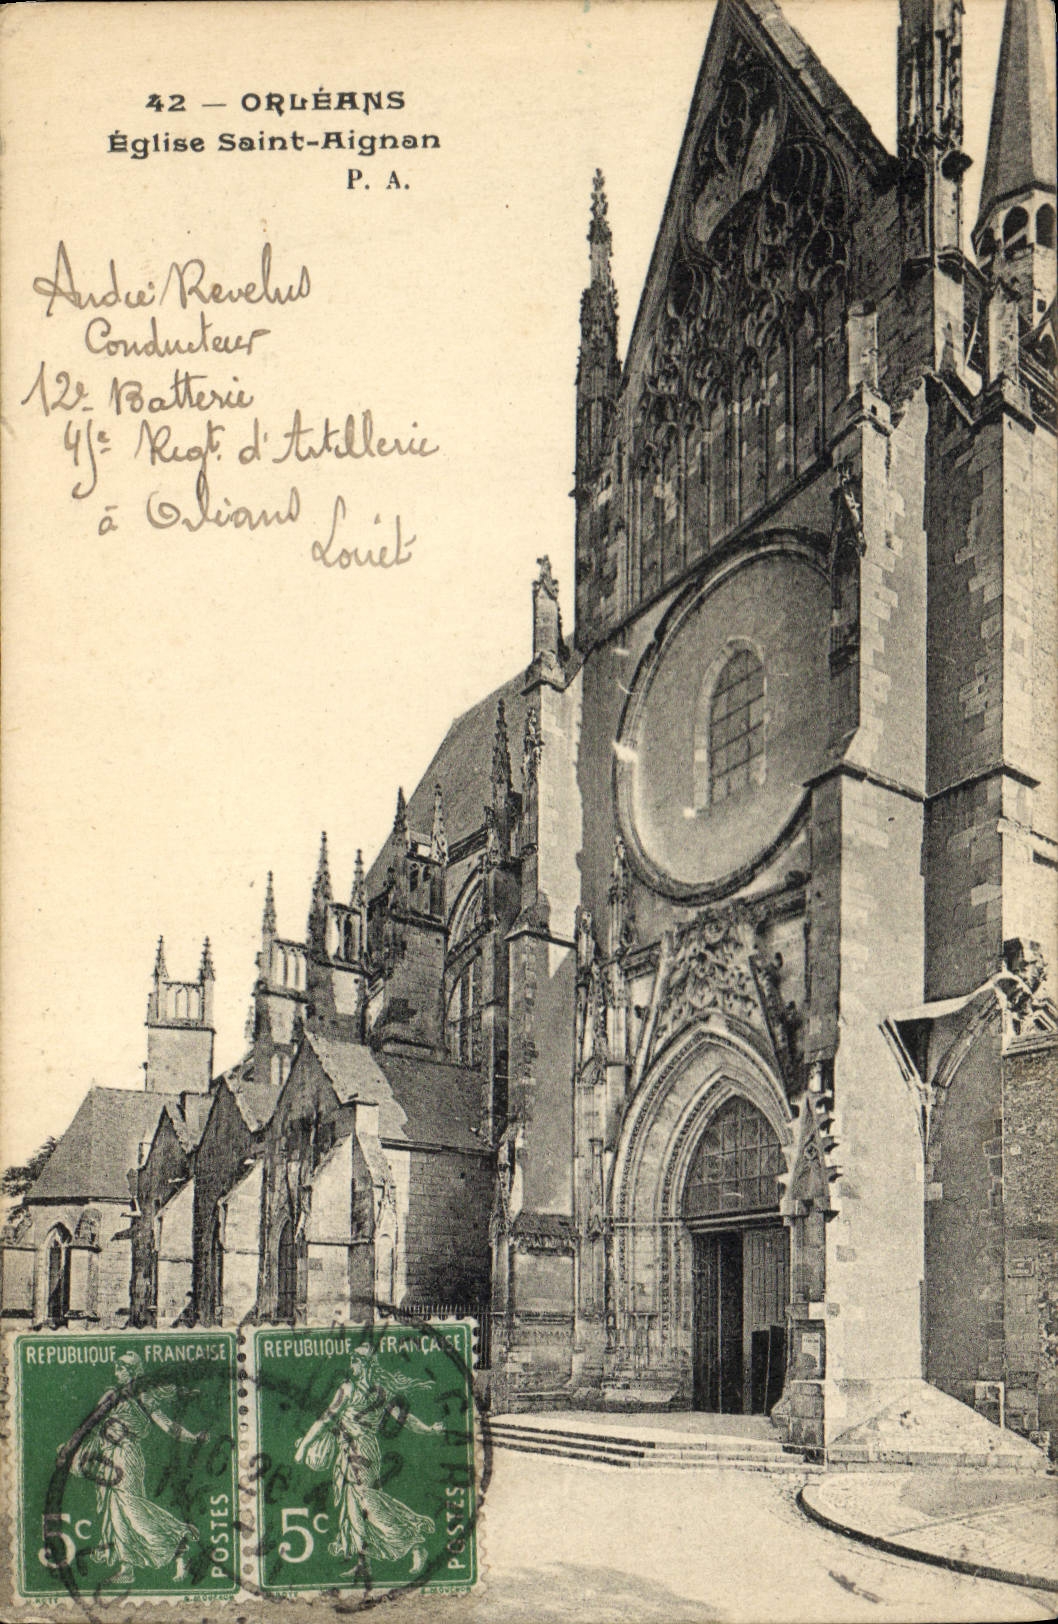 42 — ORLÉANS
Église Saint-Aignan
P. A.
André Revelus
Conducteur
12e Batterie
45e Regt. d'Artillerie
à Orléans
Loiret
REPUBLIQUE FRANÇAISE
5c
POSTES
REPUBLIQUE FRANÇAISE
5c
POSTES